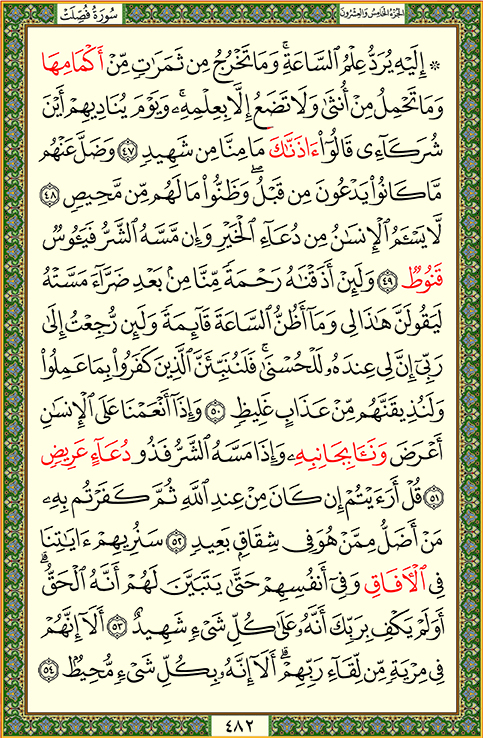 الجزء الخامس والعشرون
سورة فصلت
۞ إِلَيْهِ يُرَدُّ عِلْمُ ٱلسَّاعَةِۚ وَمَا تَخْرُجُ مِن ثَمَرَٰتٍ مِّنْ أَكْمَامِهَا
وَمَا تَحْمِلُ مِنْ أُنثَىٰ وَلَا تَضَعُ إِلَّا بِعِلْمِهِۦۚ وَيَوْمَ يُنَادِيهِمْ أَيْنَ
شُرَكَآءِى قَالُوٓا۟ ءَاذَنَّٰكَ مَا مِنَّا مِن شَهِيدٍ ٤٧ وَضَلَّ عَنْهُم
مَّا كَانُوا۟ يَدْعُونَ مِن قَبْلُۖ وَظَنُّوا۟ مَا لَهُم مِّن مَّحِيصٍ ٤٨
لَّا يَسْـَٔمُ ٱلْإِنسَٰنُ مِن دُعَآءِ ٱلْخَيْرِ وَإِن مَّسَّهُ ٱلشَّرُّ فَيَـُٔوسٌ
قَنُوطٌ ٤٩ وَلَئِنْ أَذَقْنَٰهُ رَحْمَةً مِّنَّا مِنۢ بَعْدِ ضَرَّآءَ مَسَّتْهُ
لَيَقُولَنَّ هَٰذَا لِى وَمَآ أَظُنُّ ٱلسَّاعَةَ قَآئِمَةً وَلَئِن رُّجِعْتُ إِلَىٰ
رَبِّىٓ إِنَّ لِى عِندَهُۥ لَلْحُسْنَىٰۚ فَلَنُنَبِّئَنَّ ٱلَّذِينَ كَفَرُوا۟ بِمَا عَمِلُوا۟
وَلَنُذِيقَنَّهُم مِّنْ عَذَابٍ غَلِيظٍ ٥٠ وَإِذَآ أَنْعَمْنَا عَلَى ٱلْإِنسَٰنِ
أَعْرَضَ وَنَـَٔا بِجَانِبِهِۦ وَإِذَا مَسَّهُ ٱلشَّرُّ فَذُو دُعَآءٍ عَرِيضٍ
٥١ قُلْ أَرَءَيْتُمْ إِن كَانَ مِنْ عِندِ ٱللَّهِ ثُمَّ كَفَرْتُم بِهِۦ
مَنْ أَضَلُّ مِمَّنْ هُوَ فِى شِقَاقٍۭ بَعِيدٍ ٥٢ سَنُرِيهِمْ ءَايَٰتِنَا
فِى ٱلْءَافَاقِ وَفِىٓ أَنفُسِهِمْ حَتَّىٰ يَتَبَيَّنَ لَهُمْ أَنَّهُ ٱلْحَقُّۗ
أَوَلَمْ يَكْفِ بِرَبِّكَ أَنَّهُۥ عَلَىٰ كُلِّ شَىْءٍ شَهِيدٌ ٥٣ أَلَآ إِنَّهُمْ
فِى مِرْيَةٍ مِّن لِّقَآءِ رَبِّهِمْۗ أَلَآ إِنَّهُۥ بِكُلِّ شَىْءٍ مُّحِيطٌۢ ٥٤
٤٨٢